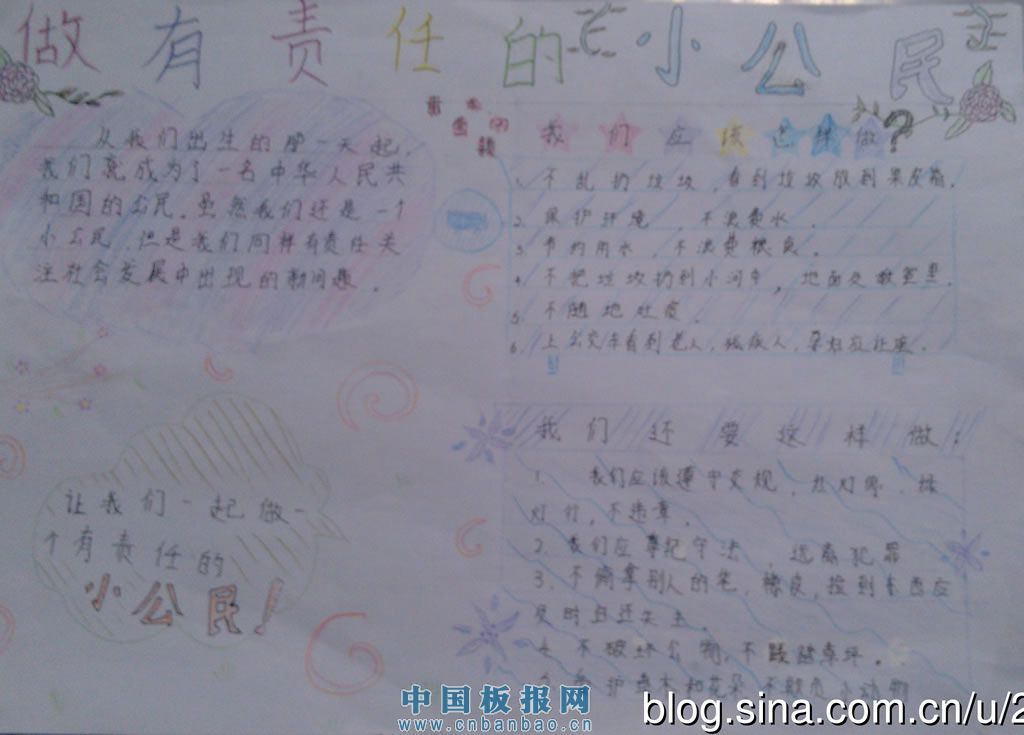 做有责任的小公民
从我们出生的那一天起，
我们竟成为了一名中华人民共
和国的公民。虽然我们还是一个
小公民，但是我们同样有责任关
注社会发展中出现的新问题。
让我们一起做一
个有责任的
小公民！
我们应该怎样做？
1. 不乱扔垃圾，看到垃圾放到果皮箱。
2. 保护环境，不浪费水。
3. 节约用水，不浪费粮食。
4. 不把垃圾扔到小河中，地面处
5. 不随地吐痰。
6. 上公交车看到老人，残疾人，孕妇应让座。
我们还要这样做：
1. 我们应该遵守交规，红灯停，绿
灯行，不违章。
2. 我们应尊纪守法，远离犯罪
3. 不偷拿别人的笔，橡皮，捡到东西应
及时归还失主。
4. 不破坏公物，不践踏草坪。
护 木和花朵 不 小动物
中国板报网
www.cnbanbao.cn
blog.sina.com.cn/u/2